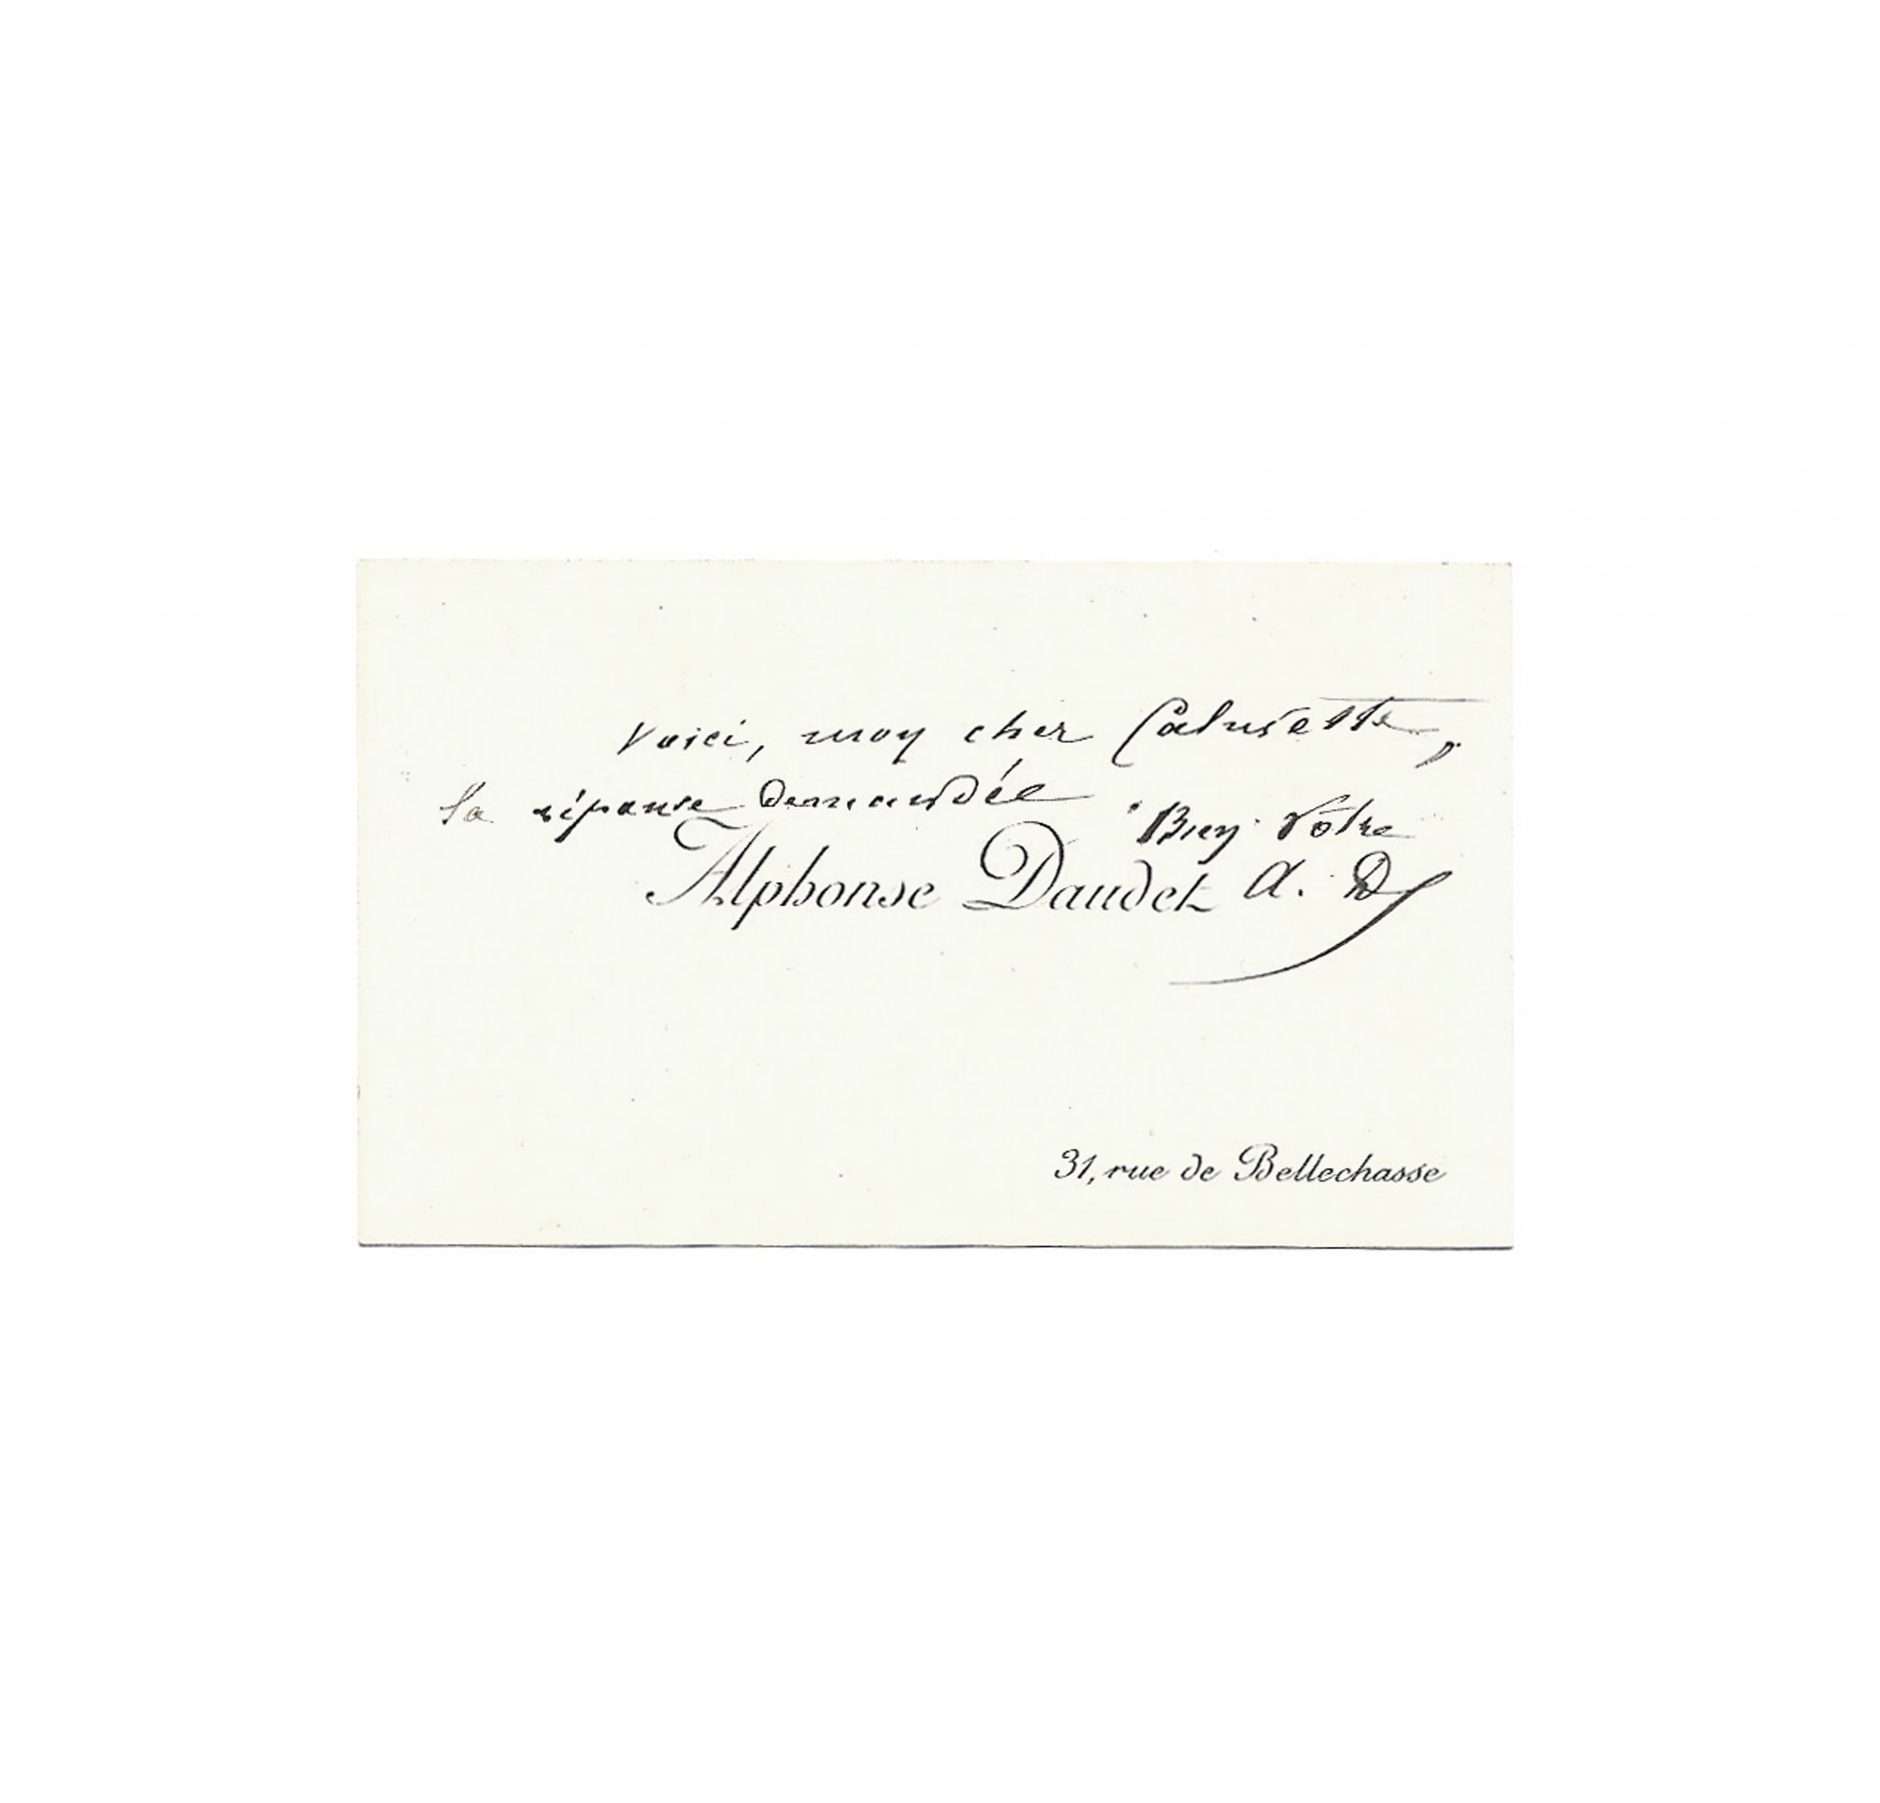 Voici, mon cher Calmette,
la réponse demandée
Bien vôtre
Alphonse Daudet A. D
31, rue de Bellechasse